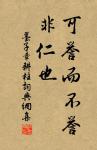 可誉而不誉
非仁也
墨子章耕柱词典网集